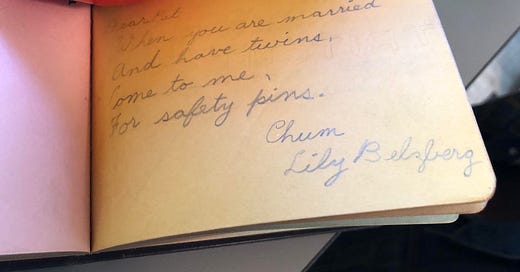 Dear Pet
When you are married
And have twins,
Come to me,
For safety pins.
Chum
Lily Belzberg